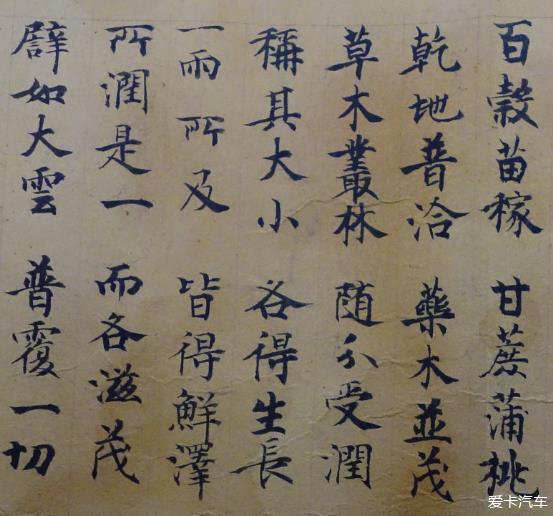 百穀苗稼 甘蔗蒲桃
乾地普洽 藥木並茂
草木叢林 随分受潤
稱其大小 各得生長
一雨所及 皆得鮮澤
所潤是一 而各滋茂
譬如大雲 普覆一切
爱卡汽车